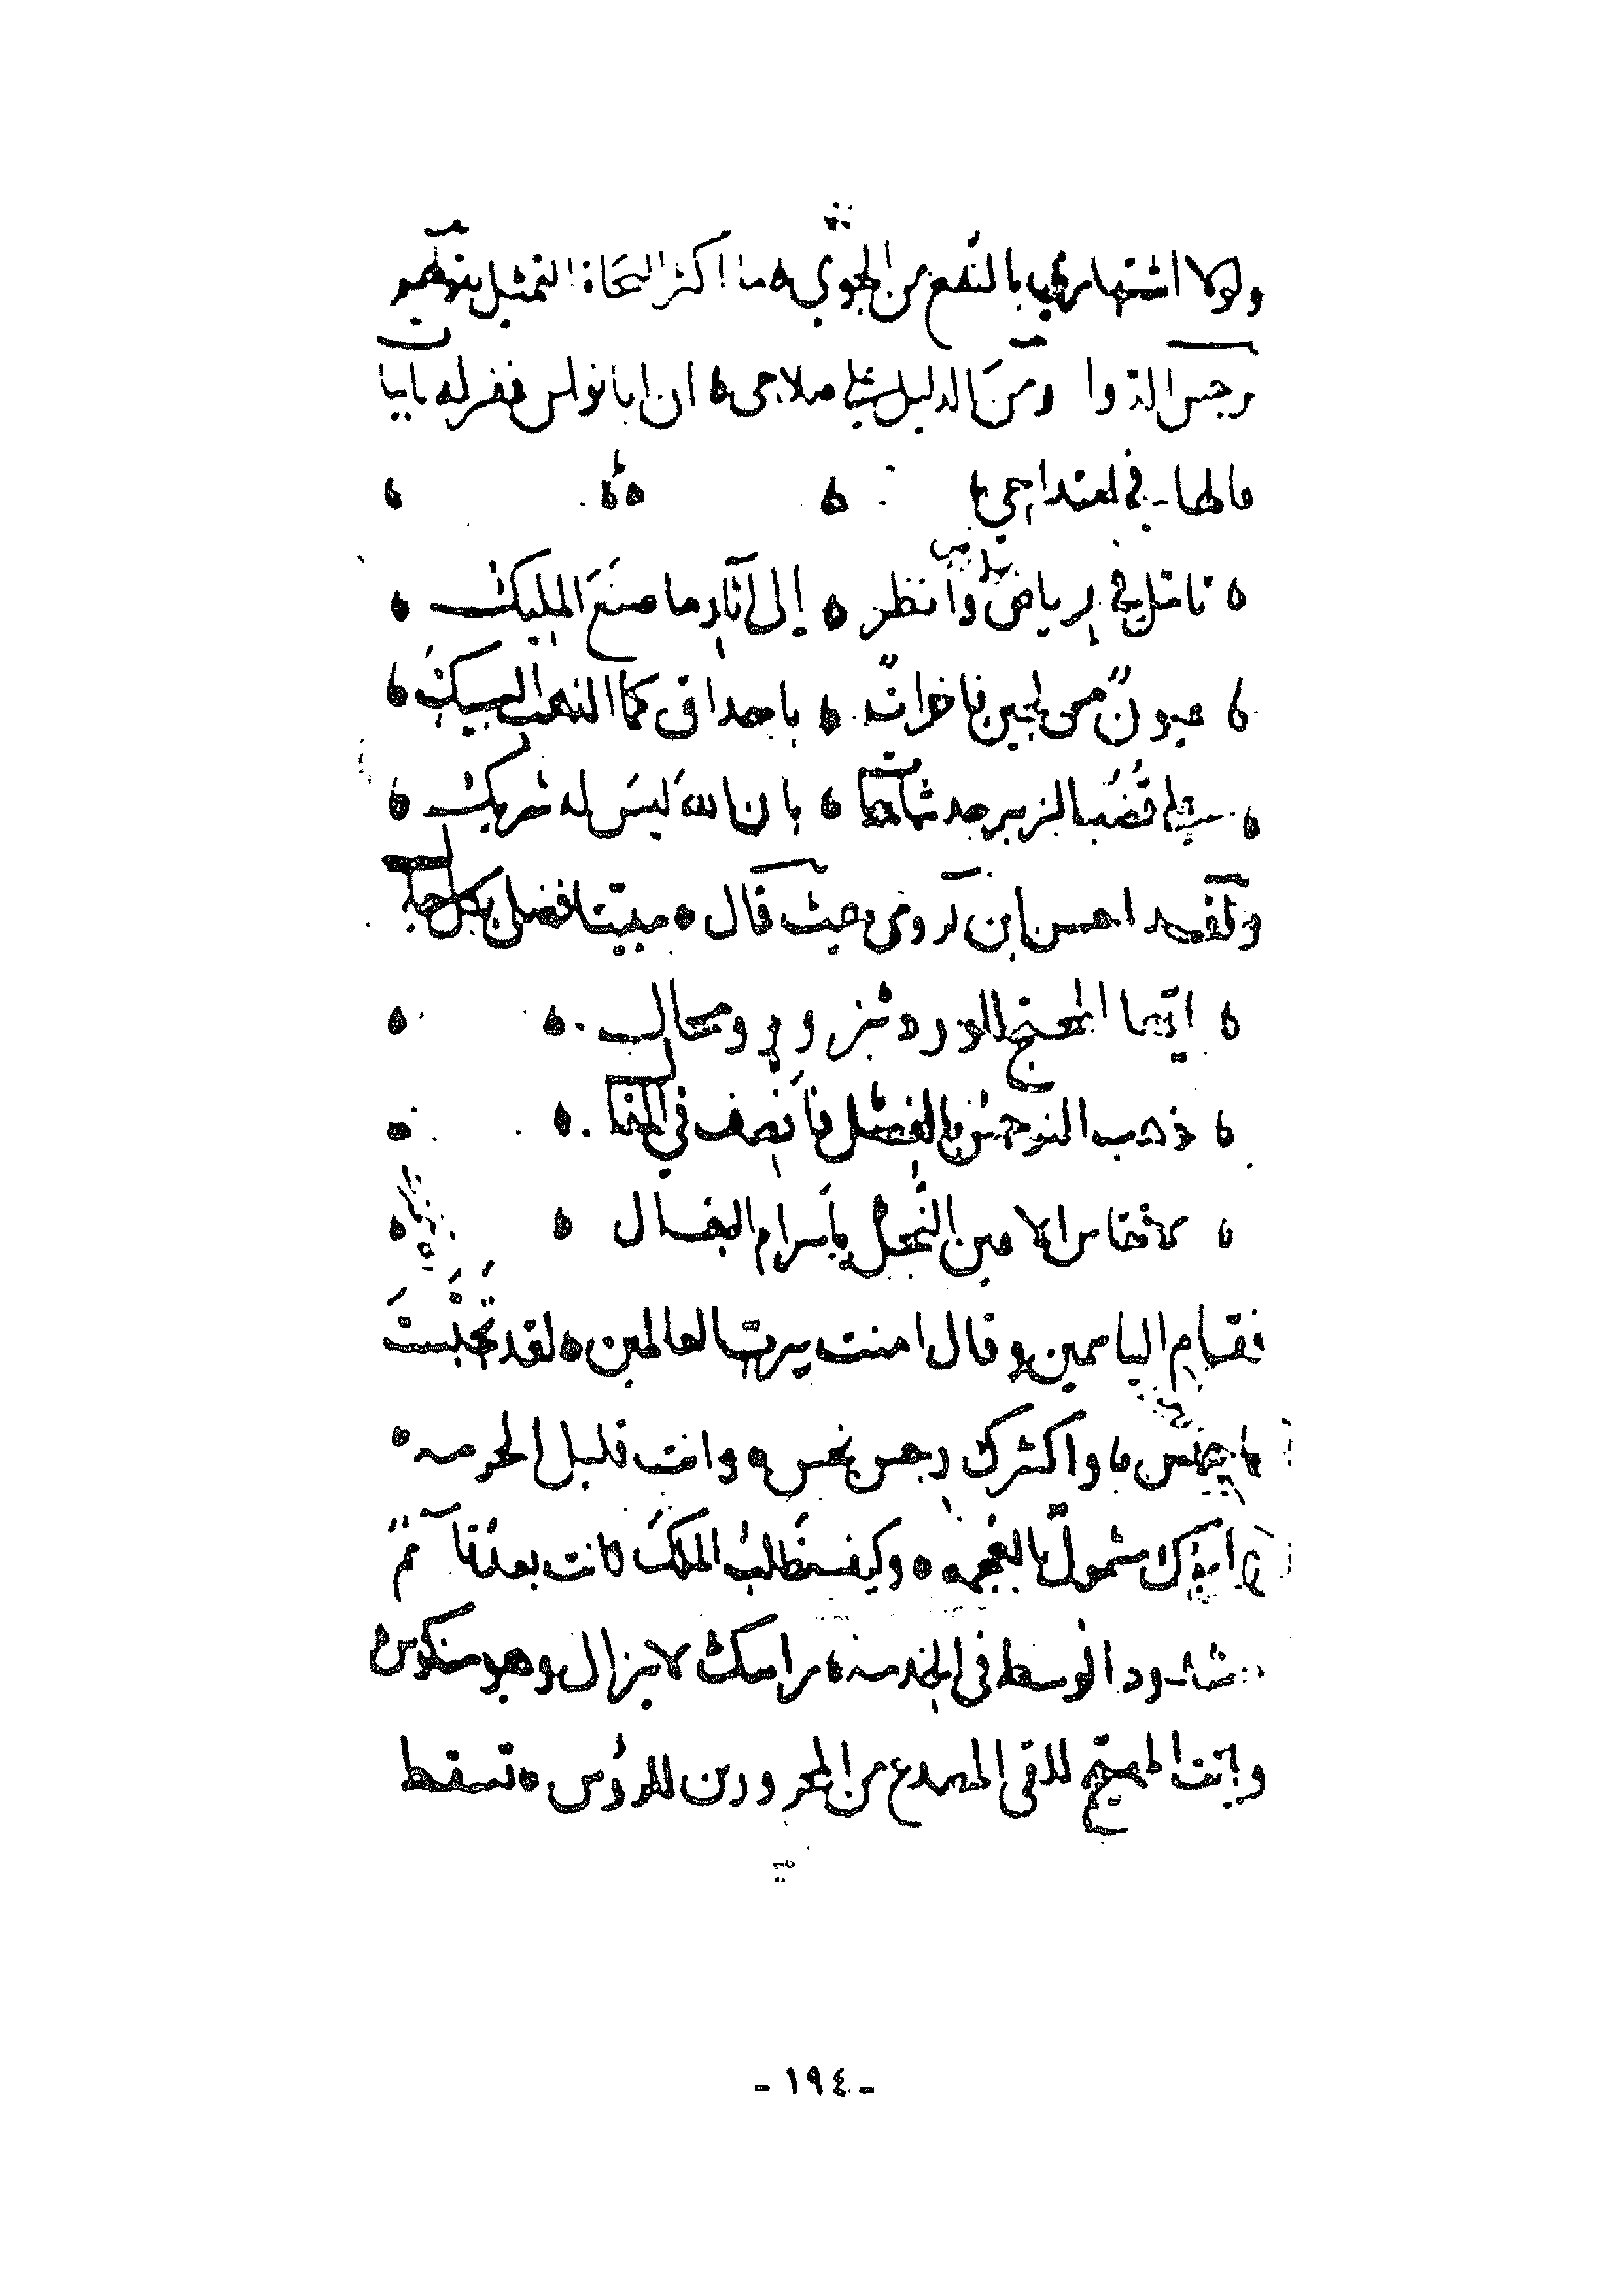 ولولا اشتهاري بالنفع من الجوي ما اكثر النحاة التمثل بقولهم
نرجس الدوا ومن الدليل على صلاحى ان ابا نواس غفر له بابيات
قالها في امتداحي
تأمل في رياض الارض وانظر ه إلى آثار ما صنع المليك
عيون من لجين فاخرات ه باحداق كما الذهب السبيك
على قضب الزبرجد شاهدات ه بان الله ليس له شريك
ولقد احسن ابن الرومي حيث قال ه مبيتا فضل بكل حال
ه ايها المحتج للورد بزور ومحال
ه ذهب النرجس بالفضل فأنصف في المقال
ه لا تقاس الاعين النجل بأسرام البغال
فقام الياسمين وقال امنت برب العالمين ه لقد تجبست
يا جبس ما واكثرك رجس نجس ه وانت قليل الحرمه
واسمك مشمول بالعجمه ه وكيف تطلب الملك وانت بعد قآئم
مشدود الوسط في الخدمه ه راسك لا يزال وهو منكوس
وانت المهيج للقي المصدع من المحرورين للرؤس ه تسقط
- ١٩٤ -